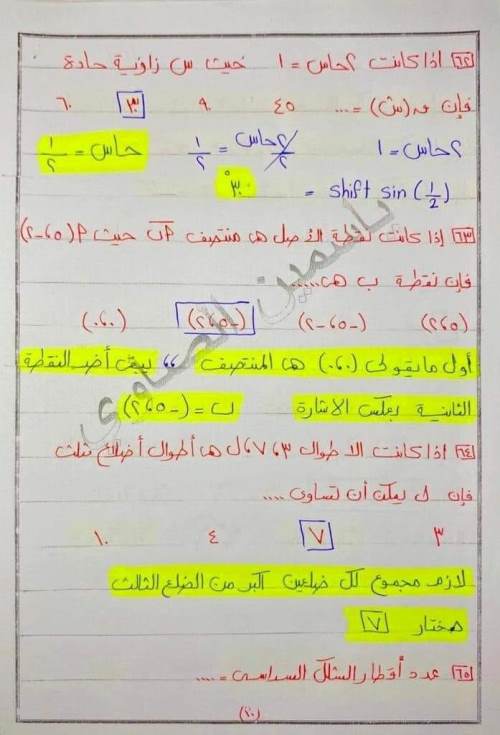 ٦٢ اذا كانت ٢حاس = ١ حيث س زاوية حادة
فإن ق(س) = .... ٤٥ ٩٠ ٣٠ ٦٠
٢حاس = ١ ٢حاس/٢ = ١/٢ حاس = ١/٢
= shift sin (1/2) ٣٠°
٦٣ إذا كانت نقطة الأصل هى منتصف اب حيث ا(٥،-٢)
فإن نقطة ب هى.....
(٢،٥) (-٥،-٢) (-٥،٢) (٠،٠)
أول ما يقولى (٠،٠) هى المنتصف ،، يبقى أخد النقطة
الثانية بعكس الاشارة ب = (-٥،٢)
٦٤ اذا كانت الاطوال ٣،٧،ل هى أطوال أضلاع مثلث
فإن ل يمكن أن تساوى ....
٣ ٤ ٧ ١٠
لازم مجموع كل ضلعين أكبر من الضلع الثالث
هختار ٧
٦٥ عدد أقطار الشكل السداسى = ....
(٢٠)
ياسمين الصاوى